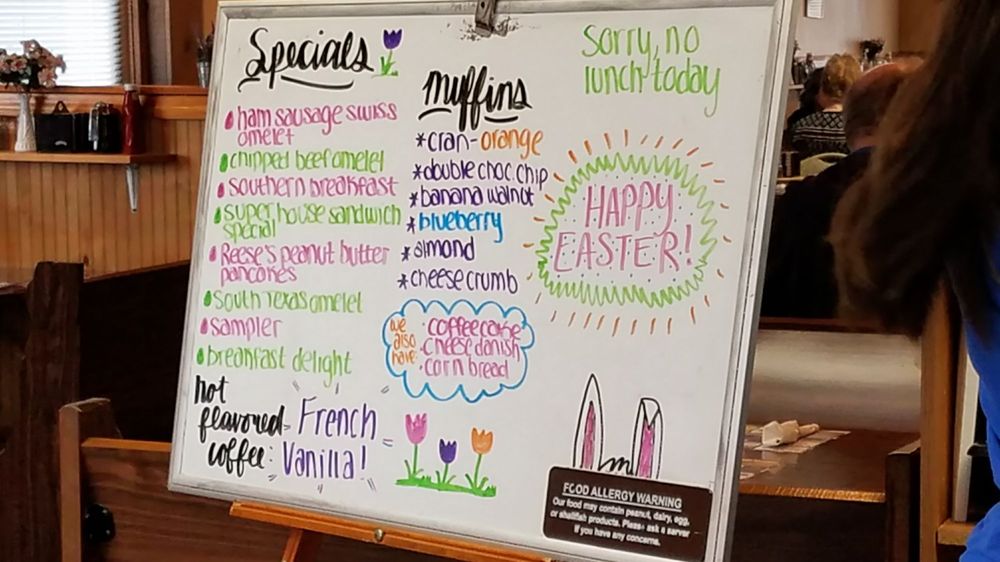 Specials
ham sausage swiss
omelet
chipped beef omelet
southern breakfast
super house sandwich
special
Reese's peanut butter
pancakes
south Texas omelet
sampler
breakfast delight
hot
flavored
coffee:
French
Vanilla!
muffins
*cran-orange
*double choc chip
*banana walnut
*blueberry
*almond
*cheese crumb
we
also
have:
·coffeecake
·cheese danish
·corn bread
Sorry, no
lunch today
HAPPY
EASTER!
FOOD ALLERGY WARNING
Our food may contain peanut, dairy, egg,
or shellfish products. Please ask a server
if you have any concerns.